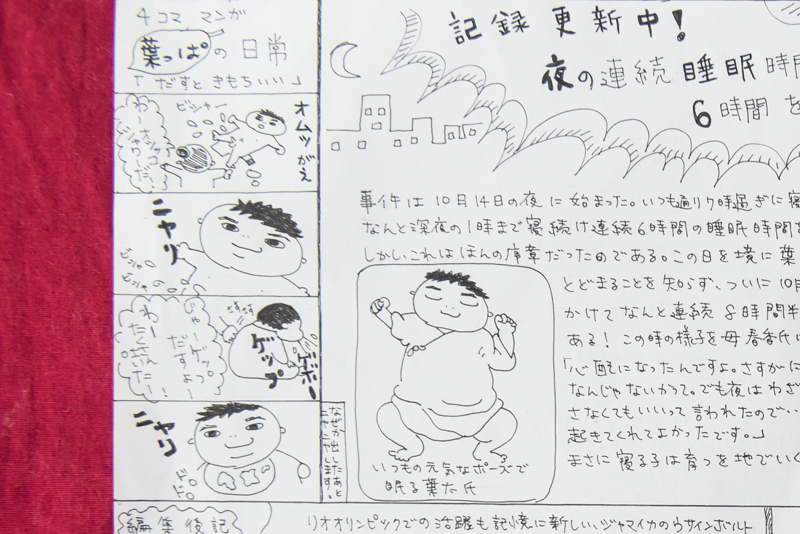 4コマ マンガ
葉っぱの日常
「だすときもちいい」
オムツがえ
ビシャー
わーオシッコ
ニヤリ
じゃーゲップ
だすよー
ゲップ
ゲボー
わー
たくさん
でたー!
ニヤリ
なぜか出したあと
ニヤニヤします。
編集後記
記録更新中!
夜の連続睡眠時間
6時間を
事件は10月14日の夜に始まった。いつも通り7時過ぎに寝
なんと深夜の1時まで寝続け連続6時間の睡眠時間を
しかし、これはほんの序章だったのである。この日を境に葉
とどまることを知らず、ついに10月
かけてなんと連続8時間半
ある!この時の様子を母春香氏は
「心配になったんですよ。さすがに
なんじゃないかって。でも夜はわざ
さなくてもいいって言われたので…
起きてくれてよかったです。」
まさに寝る子は育つを地でいく
いつもの元気なポーズで
眠る葉太氏
リオオリンピックでの活躍も記憶に新しい、ジャマイカのウサインボルト